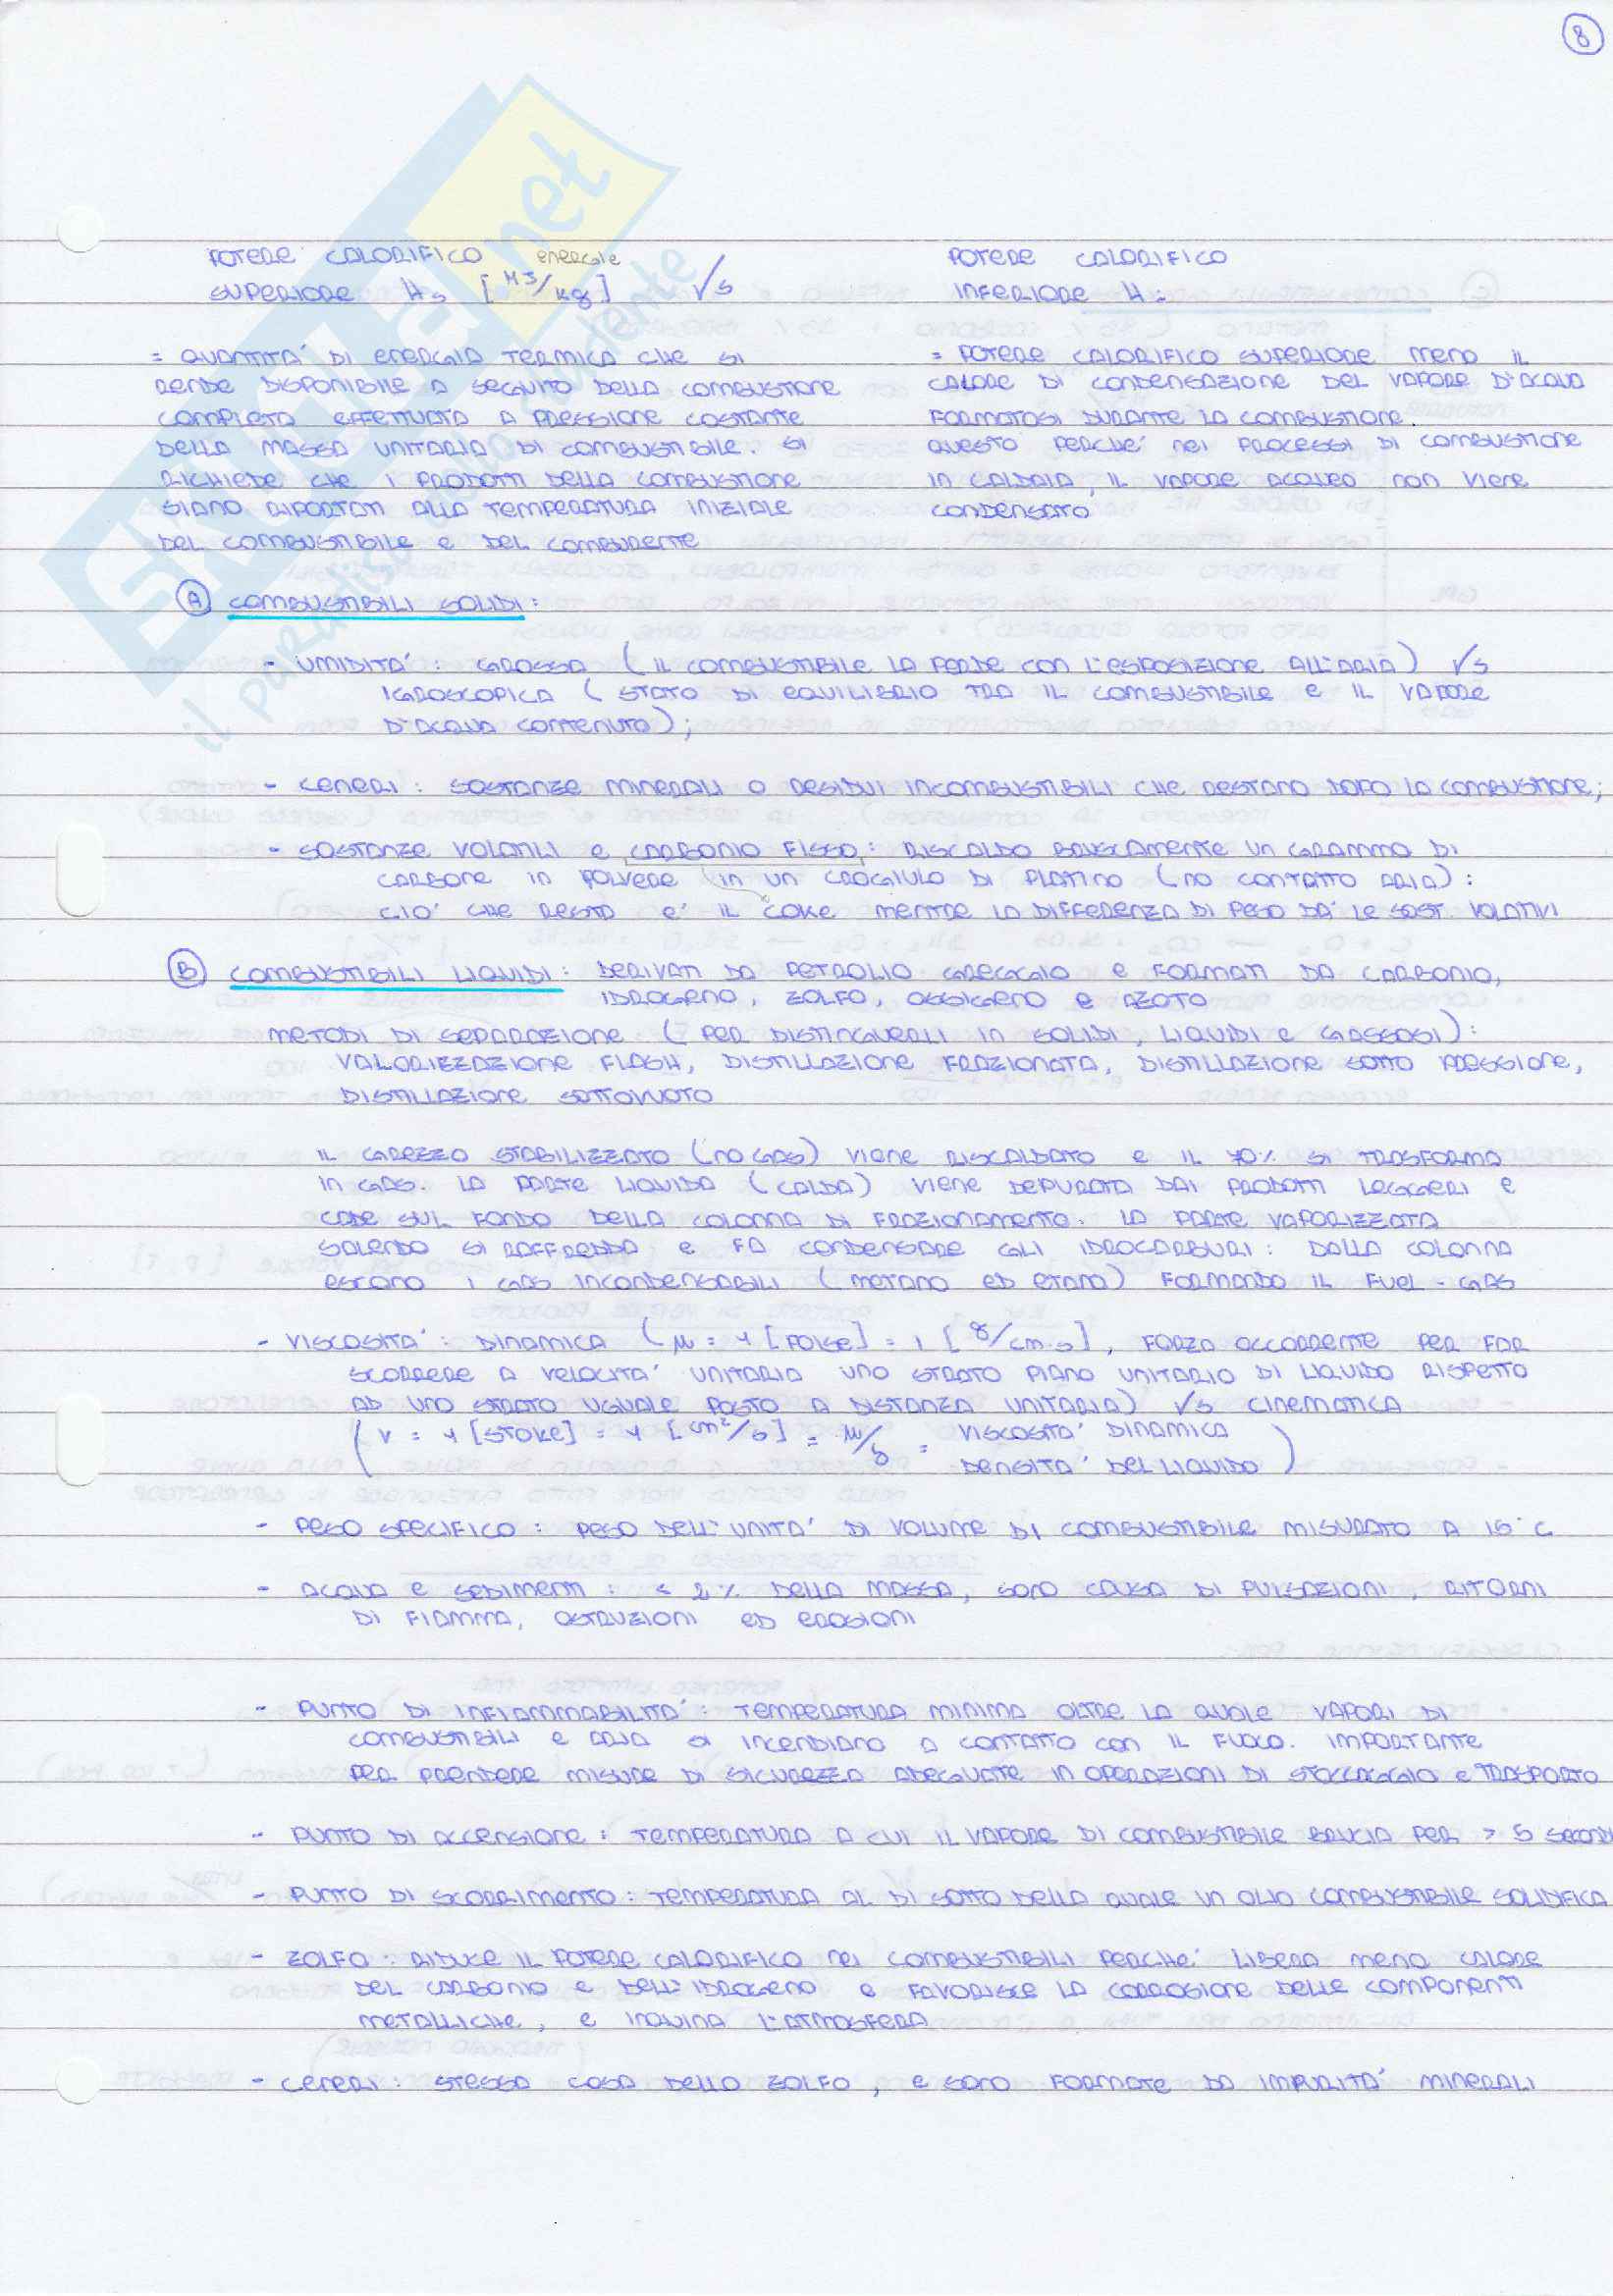 8
POTERE CALORIFICO energie
SUPERIORE Hs [MJ/kg] VS
POTERE CALORIFICO
INFERIORE Hi
= QUANTITA' DI ENERGIA TERMICA CHE SI
RENDE DISPONIBILE A SEGUITO DELLA COMBUSTIONE
COMPLETA EFFETTUATA A PRESSIONE COSTANTE
DELLA MASSA UNITARIA DI COMBUSTIBILE. SI
RICHIEDE CHE I PRODOTTI DELLA COMBUSTIONE
SIANO RIPORTATI ALLA TEMPERATURA INIZIALE
DEL COMBUSTIBILE E DEL COMBURENTE
= POTERE CALORIFICO SUPERIORE MENO IL
CALORE DI CONDENSAZIONE DEL VAPORE D'ACQUA
FORMATOSI DURANTE LA COMBUSTIONE.
QUESTO PERCHE' NEI PROCESSI DI COMBUSTIONE
IN CALDAIA, IL VAPORE ACQUEO NON VIENE
CONDENSATO
A COMBUSTIBILI SOLIDI:
- UMIDITA': GROSSA (IL COMBUSTIBILE LA PERDE CON L'ESPOSIZIONE ALL'ARIA) VS
IGROSCOPICA (STATO DI EQUILIBRIO TRA IL COMBUSTIBILE E IL VAPORE
D'ACQUA CONTENUTO);
- CENERI: SOSTANZE MINERALI O RESIDUI INCOMBUSTIBILI CHE RESTANO DOPO LA COMBUSTIONE;
- SOSTANZE VOLATILI E CARBONIO FISSO: RISCALDO BRUSCAMENTE UN GRAMMO DI
CARBONE IN POLVERE IN UN CROGIULO DI PLATINO (NO CONTATTO ARIA):
CIO' CHE RESTA E' IL COKE MENTRE LA DIFFERENZA DI PESO DA' LE SOST. VOLATIVI
B COMBUSTIBILI LIQUIDI: DERIVATI DA PETROLIO GREGGIO E FORMATI DA CARBONIO,
IDROGENO, ZOLFO, OSSIGENO E AZOTO
METODI DI SEPARAZIONE (PER DISTINGUERLI IN SOLIDI, LIQUIDI E GASSOSI):
VALORIZZAZIONE FLASH, DISTILLAZIONE FRAZIONATA, DISTILLAZIONE SOTTO PRESSIONE,
DISTILLAZIONE SOTTOVUOTO
IL GREZZO STABILIZZATO (NO GAS) VIENE RISCALDATO E IL 70% SI TRASFORMA
IN GAS. LA PARTE LIQUIDA (CALDA) VIENE DEPURATA DAI PRODOTTI LEGGERI E
CADE SUL FONDO DELLA COLONNA DI FRAZIONAMENTO. LA PARTE VAPORIZZATA
SALENDO SI RAFFREDDA E FA CONDENSARE GLI IDROCARBURI: DALLA COLONNA
ESCONO I GAS INCONDENSABILI (METANO ED ETANO) FORMANDO IL FUEL-GAS
- VISCOSITA': DINAMICA (μ = 1 [POISE] = 1 [g/cm·s], FORZA OCCORRENTE PER FAR
SCORRERE A VELOCITA' UNITARIA UNO STRATO PIANO UNITARIO DI LIQUIDO RISPETTO
AD UNO STRATO UGUALE POSTO A DISTANZA UNITARIA) VS CINEMATICA
(ν = 1 [STOKE] = 1 [cm²/s] = μ/δ = VISCOSITA' DINAMICA
DENSITA' DEL LIQUIDO)
- PESO SPECIFICO: PESO DELL'UNITA' DI VOLUME DI COMBUSTIBILE MISURATO A 15°C
- ACQUA E SEDIMENTI: ≤ 2% DELLA MASSA, SONO CAUSA DI PULSAZIONI, RITORNI
DI FIAMMA, OSTRUZIONI ED EROSIONI
- PUNTO DI INFIAMMABILITA': TEMPERATURA MINIMA OLTRE LA QUALE VAPORI DI
COMBUSTIBILI E ARIA SI INCENDIANO A CONTATTO CON IL FUOCO. IMPORTANTE
PER PRENDERE MISURE DI SICUREZZA ADEGUATE IN OPERAZIONI DI STOCCAGGIO E TRASPORTO
- PUNTO DI ACCENSIONE: TEMPERATURA A CUI IL VAPORE DI COMBUSTIBILE BRUCIA PER > 5 SECONDI
- PUNTO DI SCORRIMENTO: TEMPERATURA AL DI SOTTO DELLA QUALE UN OLIO COMBUSTIBILE SOLIDIFICA
- ZOLFO: RIDUCE IL POTERE CALORIFICO NEI COMBUSTIBILI PERCHE' LIBERA MENO CALORE
DEL CARBONIO E DELL'IDROGENO E FAVORISCE LA CORROSIONE DELLE COMPONENTI
METALLICHE, E INQUINA L'ATMOSFERA
- CENERI: STESSA COSA DELLO ZOLFO, E SONO FORMATE DA IMPURITA' MINERALI
SKUOLA.net
il paradiso dello studente